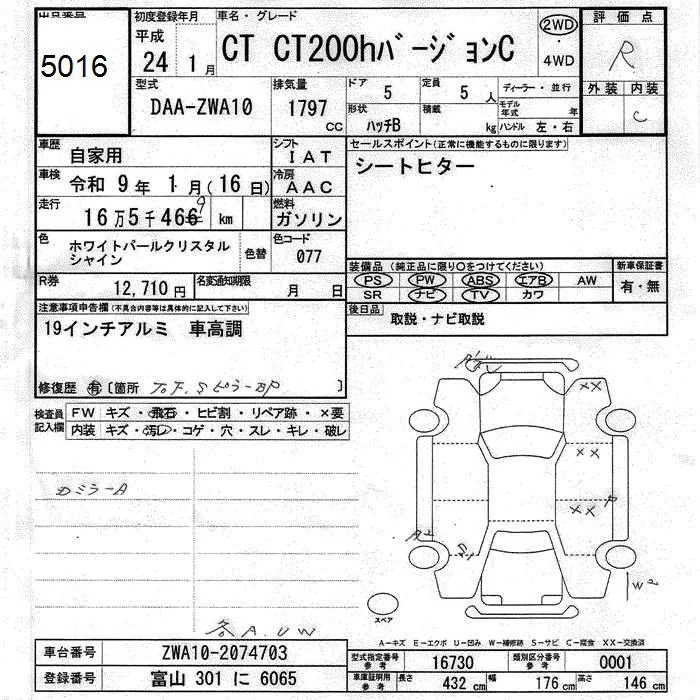 出品番号
5016
初度登録年月
平成
24 1月
車名・グレード
CT CT200hバージョンC
2WD
・
4WD
評価点
R
外装 内装
C
型式
DAA-ZWA10
排気量
1797
CC
ドア
5
定員
5 人
形状
ハッチB
積載
kg
ディーラー・並行
モデル年式 年
ハンドル 左・右
車歴
自家用
シフト
IAT
車検
令和 9年 1月(16日)
冷房
AAC
走行
16万5千466 9 km
燃料
ガソリン
色
ホワイトパールクリスタル
シャイン
色替
色コード
077
R券
12,710円
名変通知期限
月 日
セールスポイント(正常に機能するものに限ります)
シートヒター
装備品 (純正品に限り○をつけてください)
PS PW ABS エアB AW
SR ナビ TV カワ
新車保証書
有・無
後日品
取説・ナビ取説
注意事項申告欄(不具合内容等は具体的に記入して下さい)
19インチアルミ 車高調
修復歴 有 [箇所 ]
検査員
記入欄
FW キズ・飛石・ヒビ割・リペア跡・×要
内装 キズ・汚レ・コゲ・穴・スレ・キレ・破レ
カミラーA
各A.UW
XX
XX
XX P
S1
W2
スペア
A-キズ E-エクボ U-凹み W-補修跡 S-サビ C-腐食 XX-交換済
車台番号
ZWA10-2074703
登録番号
富山 301 に 6065
型式指定番号
参考
16730
類別区分番号
参考
0001
車庫証明用
参考
長さ 432 cm 幅 176 cm 高さ 146 cm